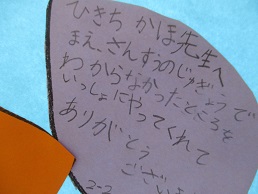 ひきち かほ先生へ
まえ、さんすうのじゅぎょうで
わからなかったところを
いっしょにやってくれて
ありがとう
ござい
2-2